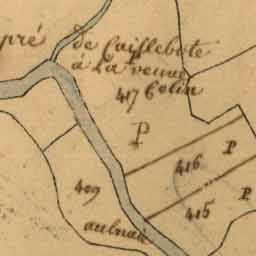 pré de Caillebote
à La veuve
417 Colin
P
416 P
409
415 P
aulnaie